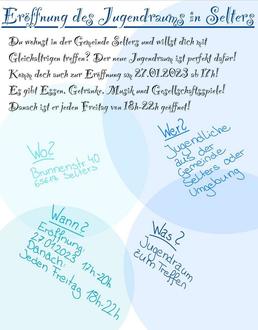 Eröffnung des Jugendraums in Selters
Du wohnst in der Gemeinde Selters und willst dich mit
Gleichaltrigen treffen? Der neue Jugendraum ist perfekt dafür!
Komm doch auch zur Eröffnung am 27.01.2023 ab 17h!
Es gibt Essen, Getränke, Musik und Gesellschaftsspiele!
Danach ist er jeden Freitag von 18h-22h geöffnet!
Wo?
Brunnenstr. 40
65618 Selters
Wer?
Jugendliche
aus der
Gemeinde
Selters oder
Umgebung
Wann?
Eröffnung:
27.01.2023 17h-20h
Danach:
Jeden Freitag 18h-22h
Was?
Jugendraum
zum Treffen